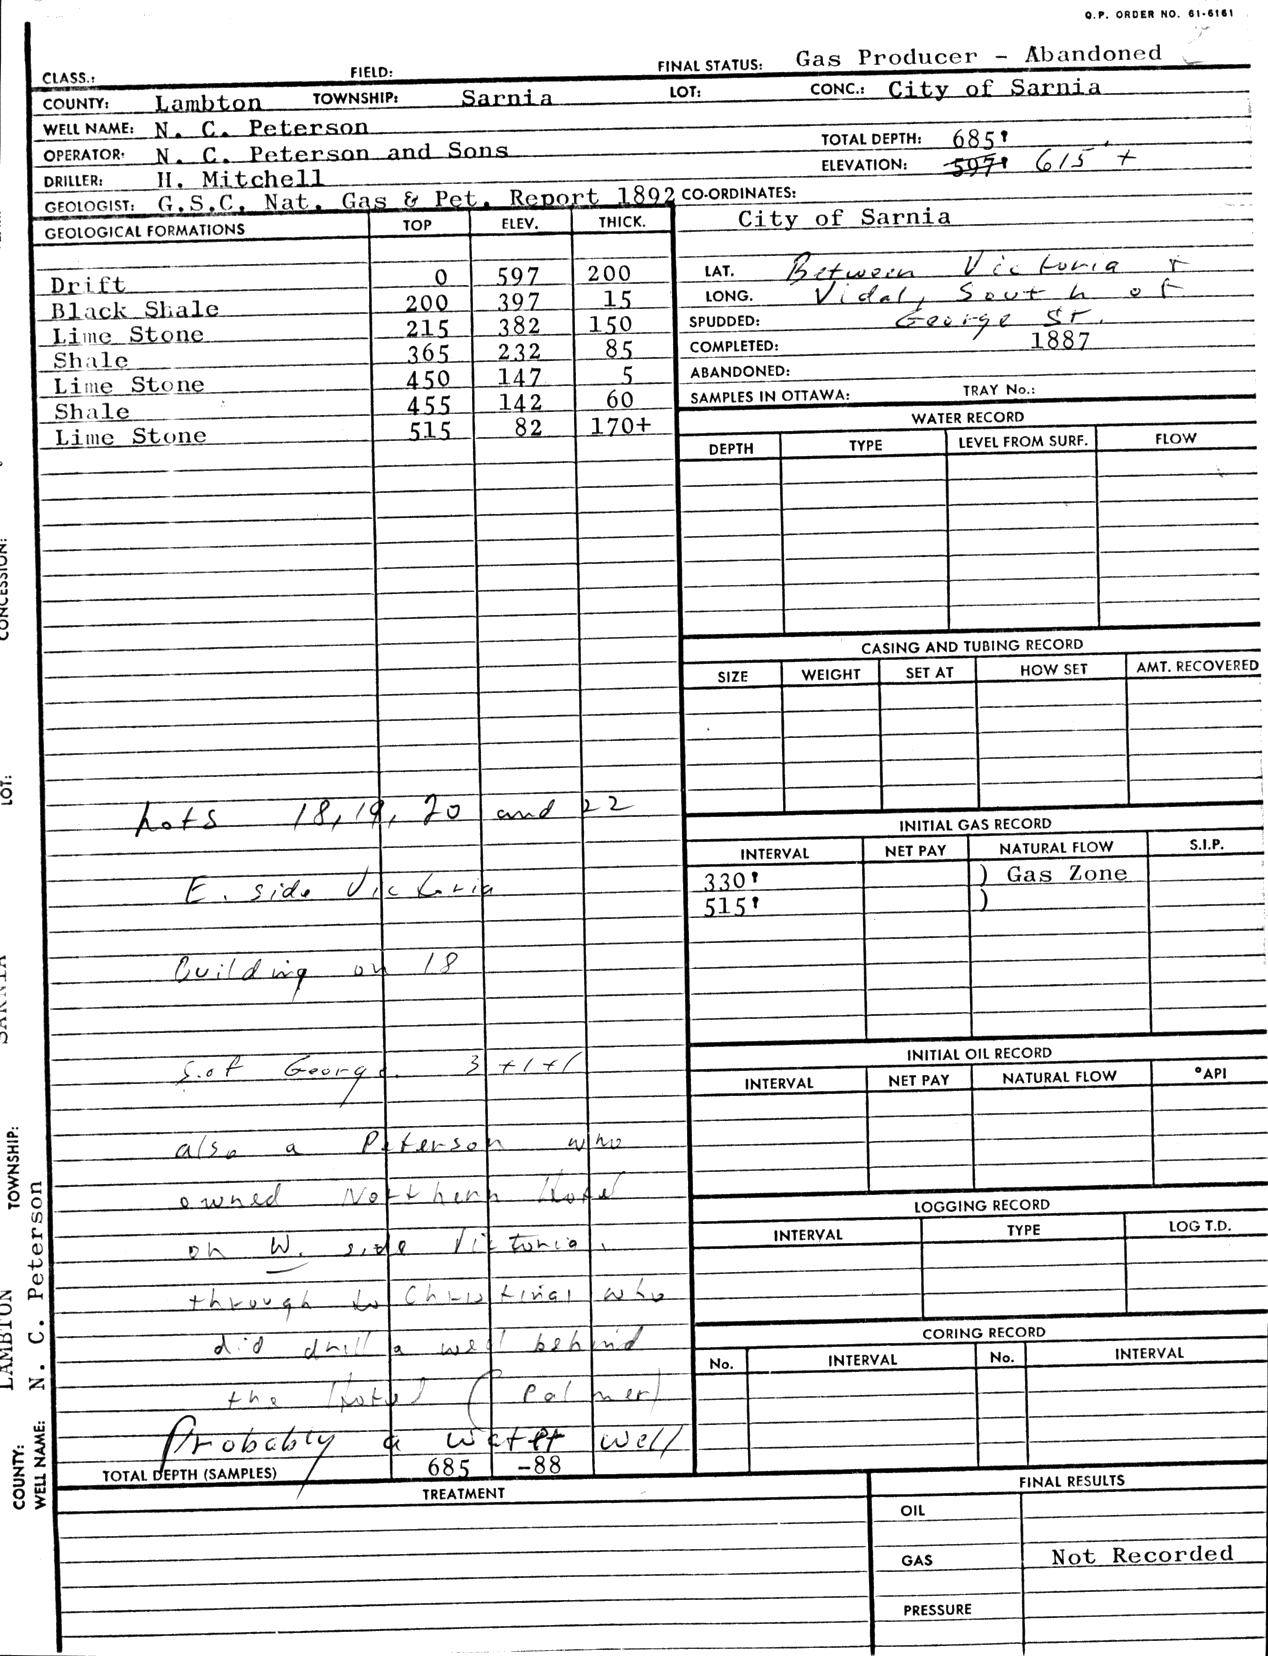 O.P. ORDER NO. 61-6161
CLASS.: FIELD: FINAL STATUS: Gas Producer - Abandoned
COUNTY: Lambton TOWNSHIP: Sarnia LOT: CONC.: City of Sarnia
WELL NAME: N. C. Peterson
TOTAL DEPTH: 685'
OPERATOR: N. C. Peterson and Sons
ELEVATION: 597' 615 +
DRILLER: H. Mitchell
GEOLOGIST: G.S.C. Nat. Gas & Pet. Report 1892 CO-ORDINATES:
City of Sarnia
GEOLOGICAL FORMATIONS TOP ELEV. THICK.
Drift 0 597 200
Black Shale 200 397 15
Lime Stone 215 382 150
Shale 365 232 85
Lime Stone 450 147 5
Shale 455 142 60
Lime Stone 515 82 170+
LAT. Between Victoria +
LONG. Vidal, South of
SPUDDED: George St.
COMPLETED: 1887
ABANDONED:
SAMPLES IN OTTAWA: TRAY No.:
WATER RECORD
DEPTH TYPE LEVEL FROM SURF. FLOW
CASING AND TUBING RECORD
SIZE WEIGHT SET AT HOW SET AMT. RECOVERED
Lots 18, 19, 20 and 22
E. side Victoria
Building on 18
S. of George. 3 +1+1
also a Peterson who
owned Northern Hotel
on W. side Victoria,
through to Christina, who
did drill a well behind
the Hotel (Palmer)
Probably a water well
TOTAL DEPTH (SAMPLES) 685 -88
INITIAL GAS RECORD
INTERVAL NET PAY NATURAL FLOW S.I.P.
330' ) Gas Zone
515' )
INITIAL OIL RECORD
INTERVAL NET PAY NATURAL FLOW °API
LOGGING RECORD
INTERVAL TYPE LOG T.D.
CORING RECORD
No. INTERVAL No. INTERVAL
TREATMENT
FINAL RESULTS
OIL
GAS Not Recorded
PRESSURE
CONCESSION:
LOT:
SARNIA
TOWNSHIP:
LAMBTON
COUNTY:
WELL NAME: N. C. Peterson